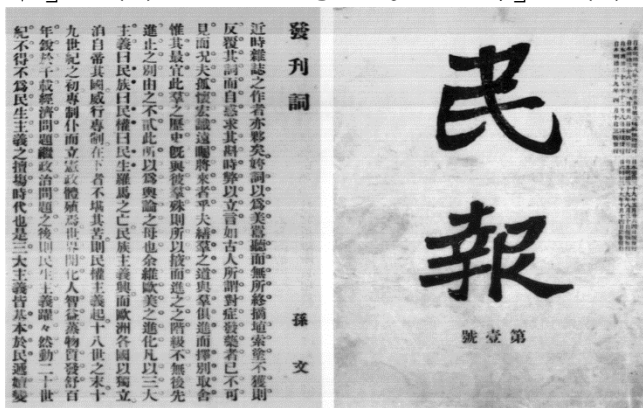 發刊詞
孫文
近時雜誌之作者亦夥矣姱詞以爲美囂聽而無所終摘埴索塗不獲則
反覆其詞而自惑求其斟時弊以立言如古人所謂對症發藥者已不可
見而況夫孤懷宏識遠矚將來者乎夫繕羣之道與羣俱進而擇別取舍
惟其最宜此羣之歷史旣與彼羣殊則所以掖而進之之階級不無後先
進止之別由之不貳此所以爲輿論之母也余維歐美之進化凡以三大
主義曰民族曰民權曰民生羅馬之亡民族主義興而歐洲各國以獨立
洎自帝其國威行專制在下者不堪其苦則民權主義起十八世之末十
九世紀之初專制仆而立憲政體殖焉世界開化人智益蒸物質發舒百
年銳於千載經濟問題繼政治問題之後則民生主義躍躍然動二十世
紀不得不爲民生主義之擅場時代也是三大主義皆基本於民遞嬗變
民報
第壹號